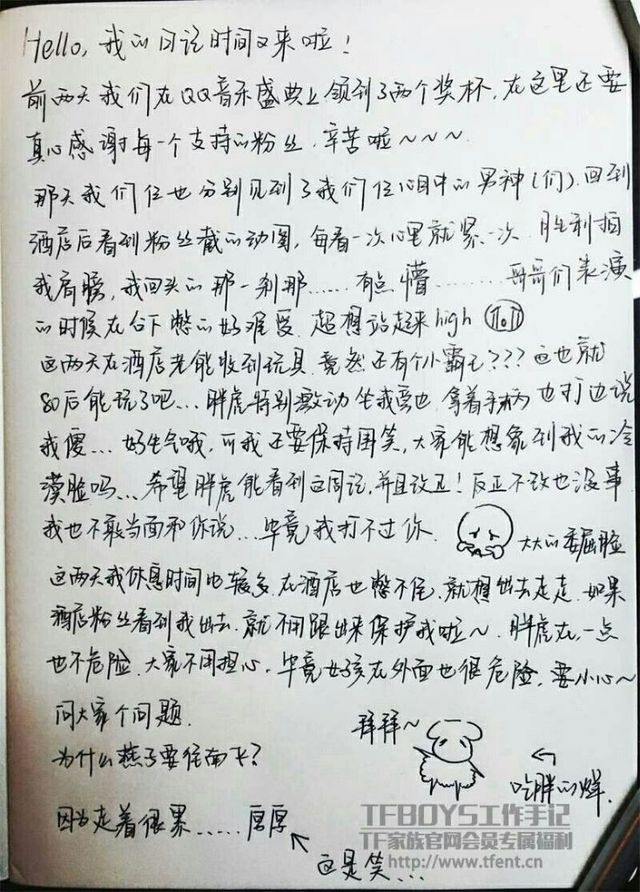 Hello, 我的周记时间又来啦！
前两天我们在QQ音乐盛典上领到了两个奖杯，在这里还要
真心感谢每一个支持的粉丝，辛苦啦~~~
那天我们仨也分别见到了我们仨心目中的男神(们)．回到
酒店后看到粉丝截的动图，每看一次心里就紧一次．胜利拍
我肩膀，我回头的那一刹那……有点懵………哥哥们表演
的时候在台下憋的好难受．超想站起来high
这两天在酒店老能收到玩具．竟然还有个小霸王???这也就
80后能玩了吧…胖虎特别激动 拿着手柄 也打边说
我傻…好生气哦，可我还要保持围笑，大家能想象到我的冷
漠脸吗…希望胖虎能看到这周记，并且改正！反正不改也没事
我也不敢当面和你说…毕竟我打不过你． 大大的委屈脸
这两天我休息时间也较多，在酒店也憋不住，就想出去走走．如果
酒店粉丝看到我出去．就不用跟出来保护我啦~ 胖虎在，一点
也不危险．大家不用担心，毕竟女孩在外面也很危险，要小心~
问大家个问题．
为什么燕子要往南飞？
拜拜~
吃胖的烊．
因为走着很累……厚厚
这是笑…
TFBOYS工作手记
TF家族官网会员专属福利
http://www.tfent.cn